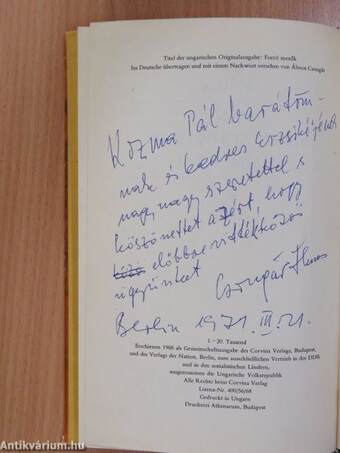 Titel der ungarischen Originalausgabe: Forró mezők
Ins Deutsche übertragen und mit einem Nachwort versehen von Álmos Csongár
Kozma Pál barátom-
nak és kedves Erzsikéjének
nagy nagy szeretettel s
köszönettel azért, hogy
előbbre vitték közös
ügyünket
Csongár Álmos
Berlin 1971. III. 21.
1.–20. Tausend
Erschienen 1968 als Gemeinschaftsausgabe des Corvina Verlags, Budapest,
und des Verlags der Nation, Berlin, zum ausschließlichen Vertrieb in der DDR
und in den sozialistischen Ländern,
ausgenommen die Ungarische Volksrepublik
Alle Rechte beim Corvina Verlag
Lizenz-Nr. 400/56/68
Gedruckt in Ungarn
Druckerei Athenaeum, Budapest
Antikvárium.hu